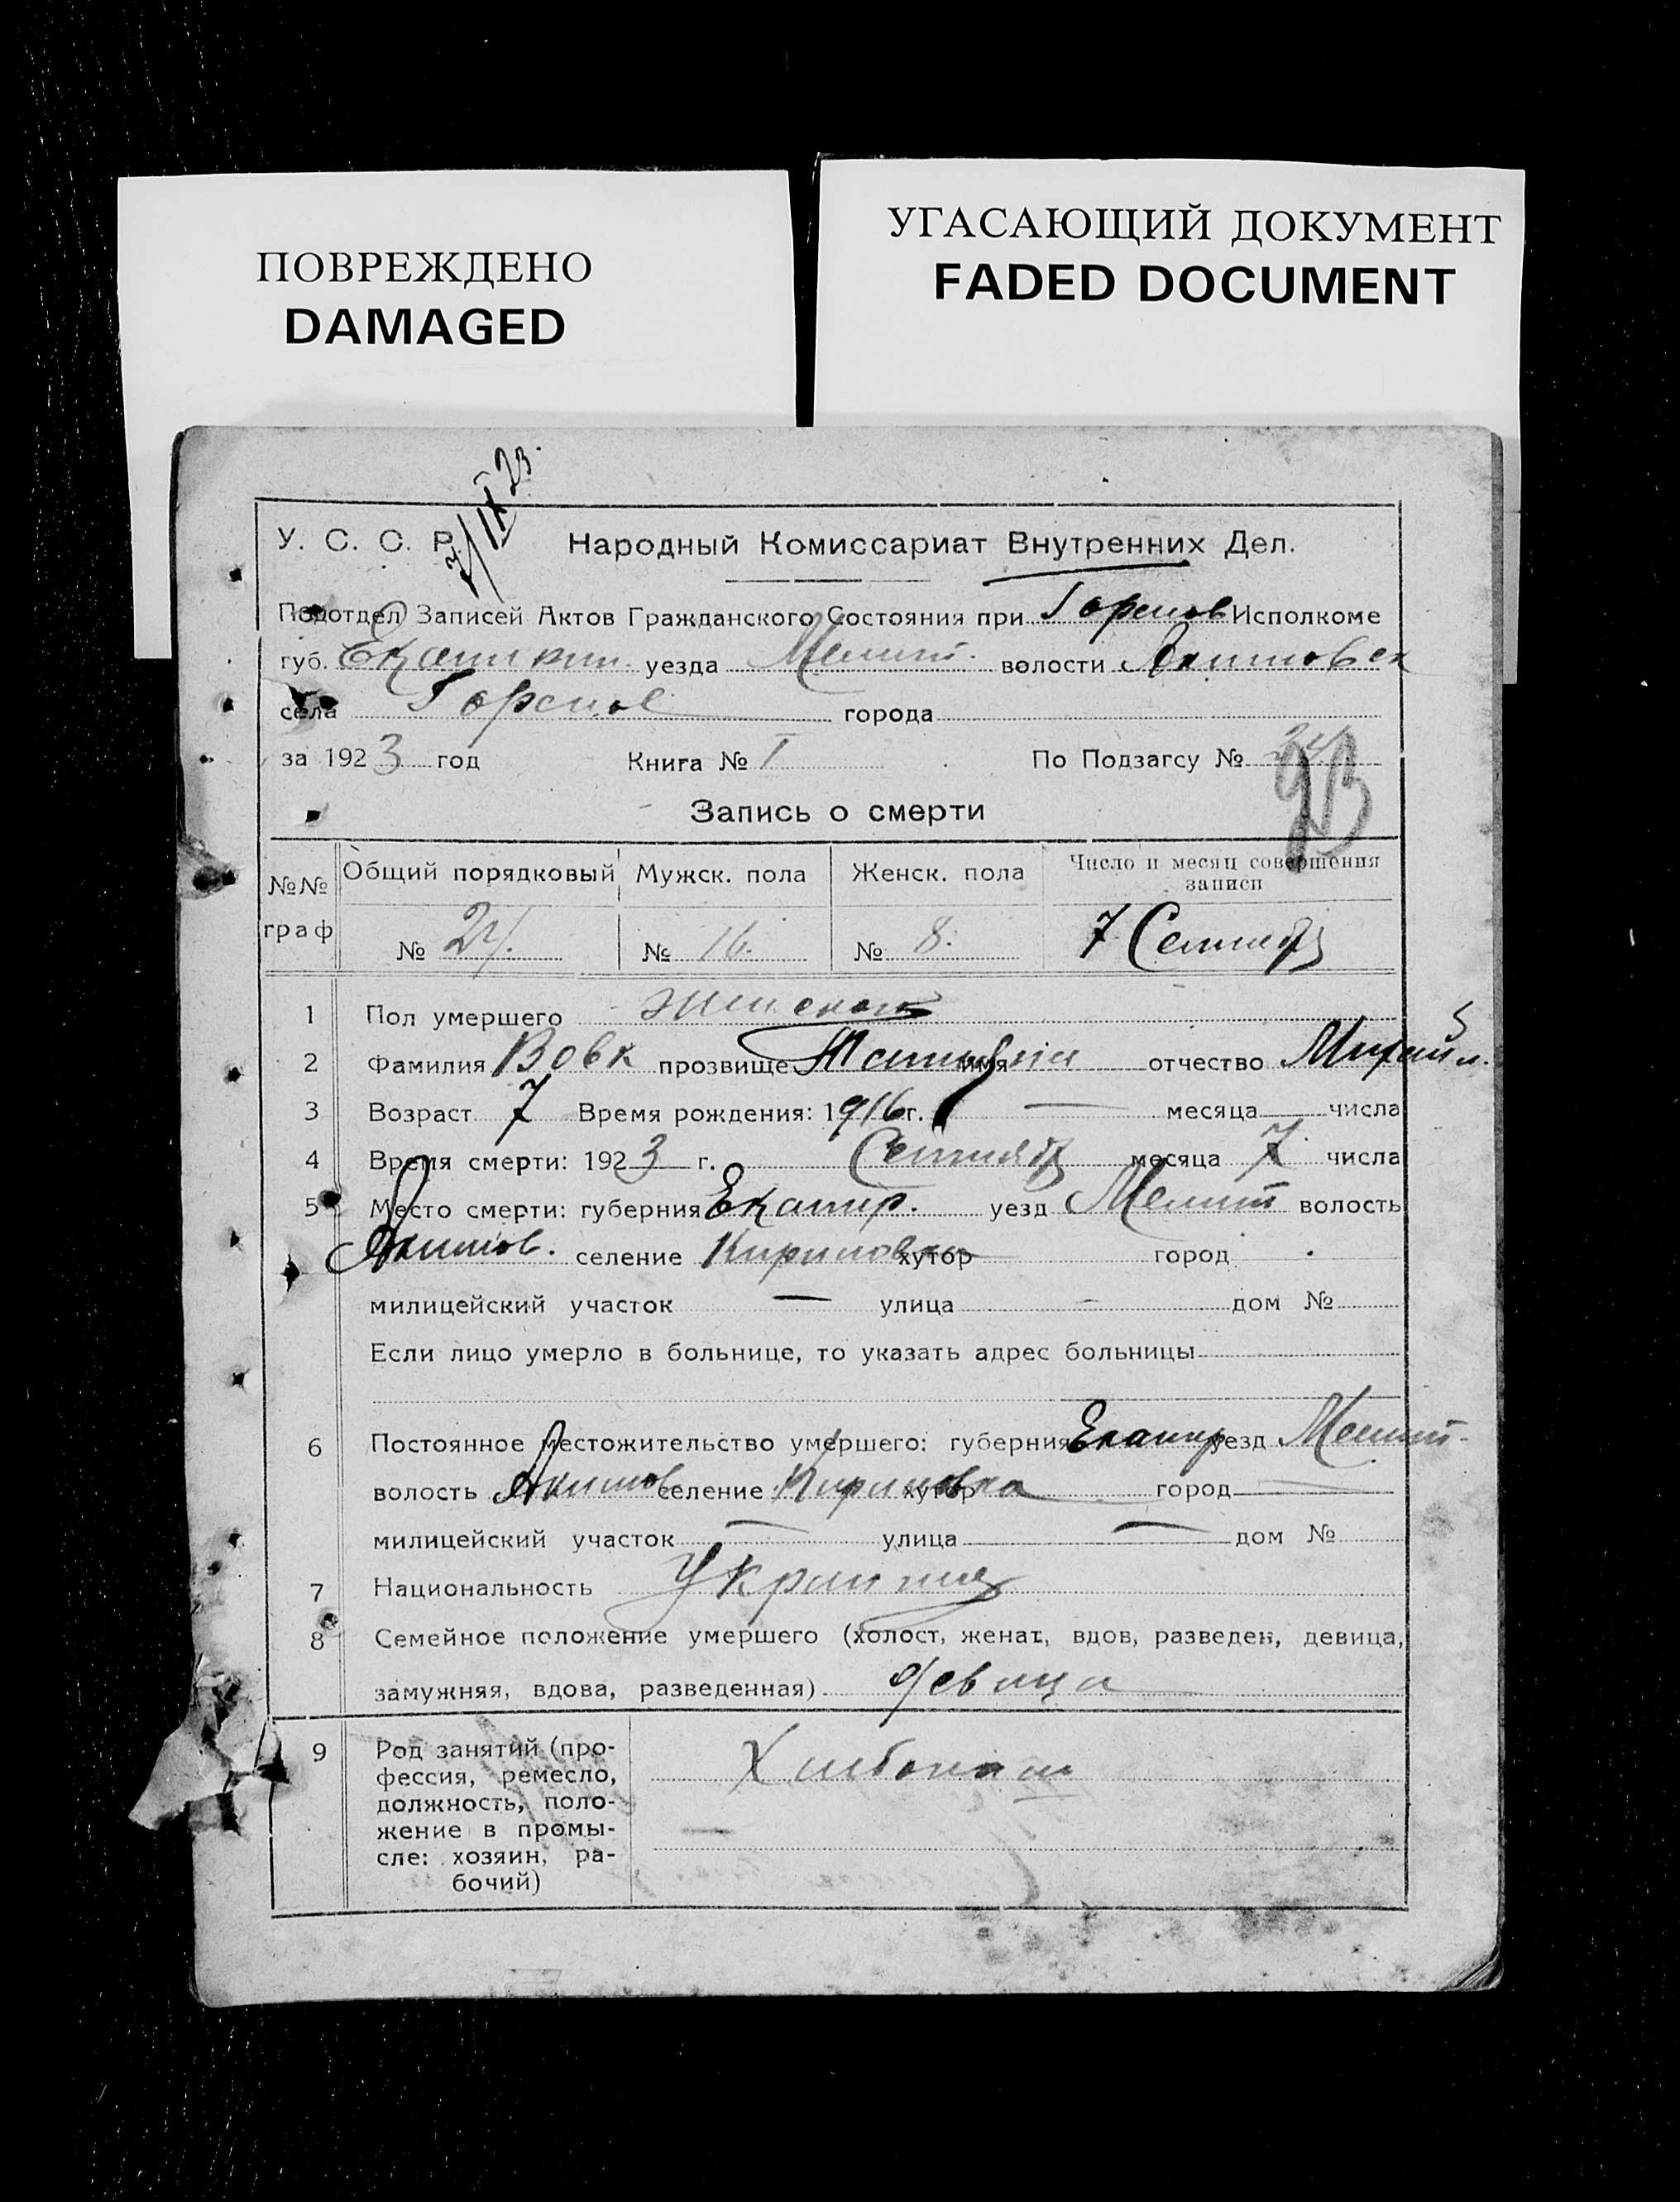 ПОВРЕЖДЕНО
DAMAGED
УГАСАЮЩИЙ ДОКУМЕНТ
FADED DOCUMENT
7/IX 23.
У. С. С. Р. Народный Комиссариат Внутренних Дел.
Подотдел Записей Актов Гражданского Состояния при Исполкоме
губ. уезда Мелит. волости Акимовск
села города
за 1923 год Книга № I По Подзагсу №
Запись о смерти
№№ граф Общий порядковый Мужск. пола Женск. пола Число и месяц совершения записи
№ 24. № 16. № 8. 7 Сентяб
1 Пол умершего женского
2 Фамилия Вовк прозвище имя отчество Михайл.
3 Возраст 7 Время рождения: 1916 г. — месяца числа
4 Время смерти: 1923 г. Сентяб месяца 7 числа
5 Место смерти: губерния Екатер. уезд Мелит волость
Акимов. селение Кириловка хутор город
милицейский участок — улица — дом №
Если лицо умерло в больнице, то указать адрес больницы
6 Постоянное местожительство умершего: губерния Екатер уезд Мелит-
волость Акимов селение Кириловка хутор город —
милицейский участок — улица — дом №
7 Национальность
8 Семейное положение умершего (холост, женат, вдов, разведен, девица,
замужняя, вдова, разведенная) девица
9 Род занятий (про-
фессия, ремесло,
должность, поло-
жение в промы-
сле: хозяин, ра-
бочий)